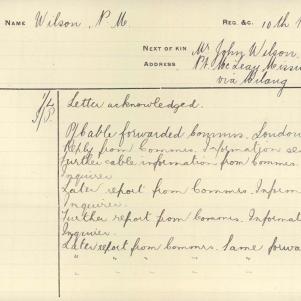 NAME Wilson, P. M. REG. &C. 10th
NEXT OF KIN Mr John Wilson
ADDRESS Pt. McLeay Missi
via Milang
Letter acknowledged.
Of Cable forwarded Commrs. London
Reply from Commrs. Information se
Further cable information from Commrs.
Inquirer
Later report from Commrs. Inform
Inquirer.
Further report from Commrs. Informat
Inquirer.
Later report from Commrs. Same forwar
" " " "
" " " "